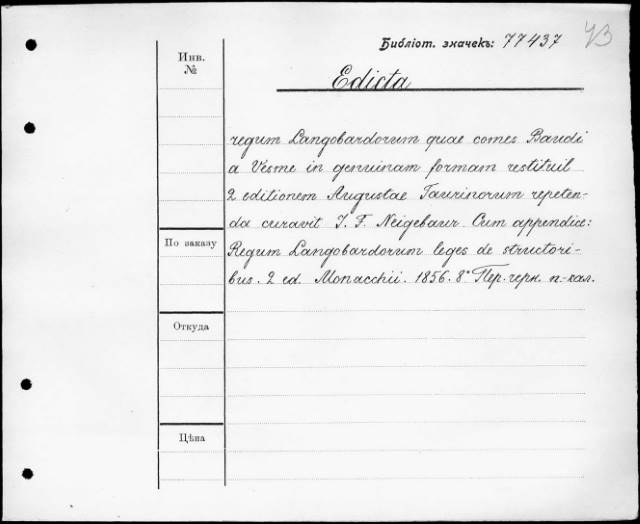 Библіот. значекъ: 77437
Инв.
№
Edicta
regum Langobardorum quae comes Baudi
a Vesme in genuinam formam restituil
2 editionem Augustae Taurinorum repeten-
da curavit J. F. Neigebaur. Cum appendice:
По заказу
Regum Langobardorum leges de structori-
bus. 2 ed. Monacchii. 1856. 8° Пер. черн. п.-кал.
Откуда
Цѣна